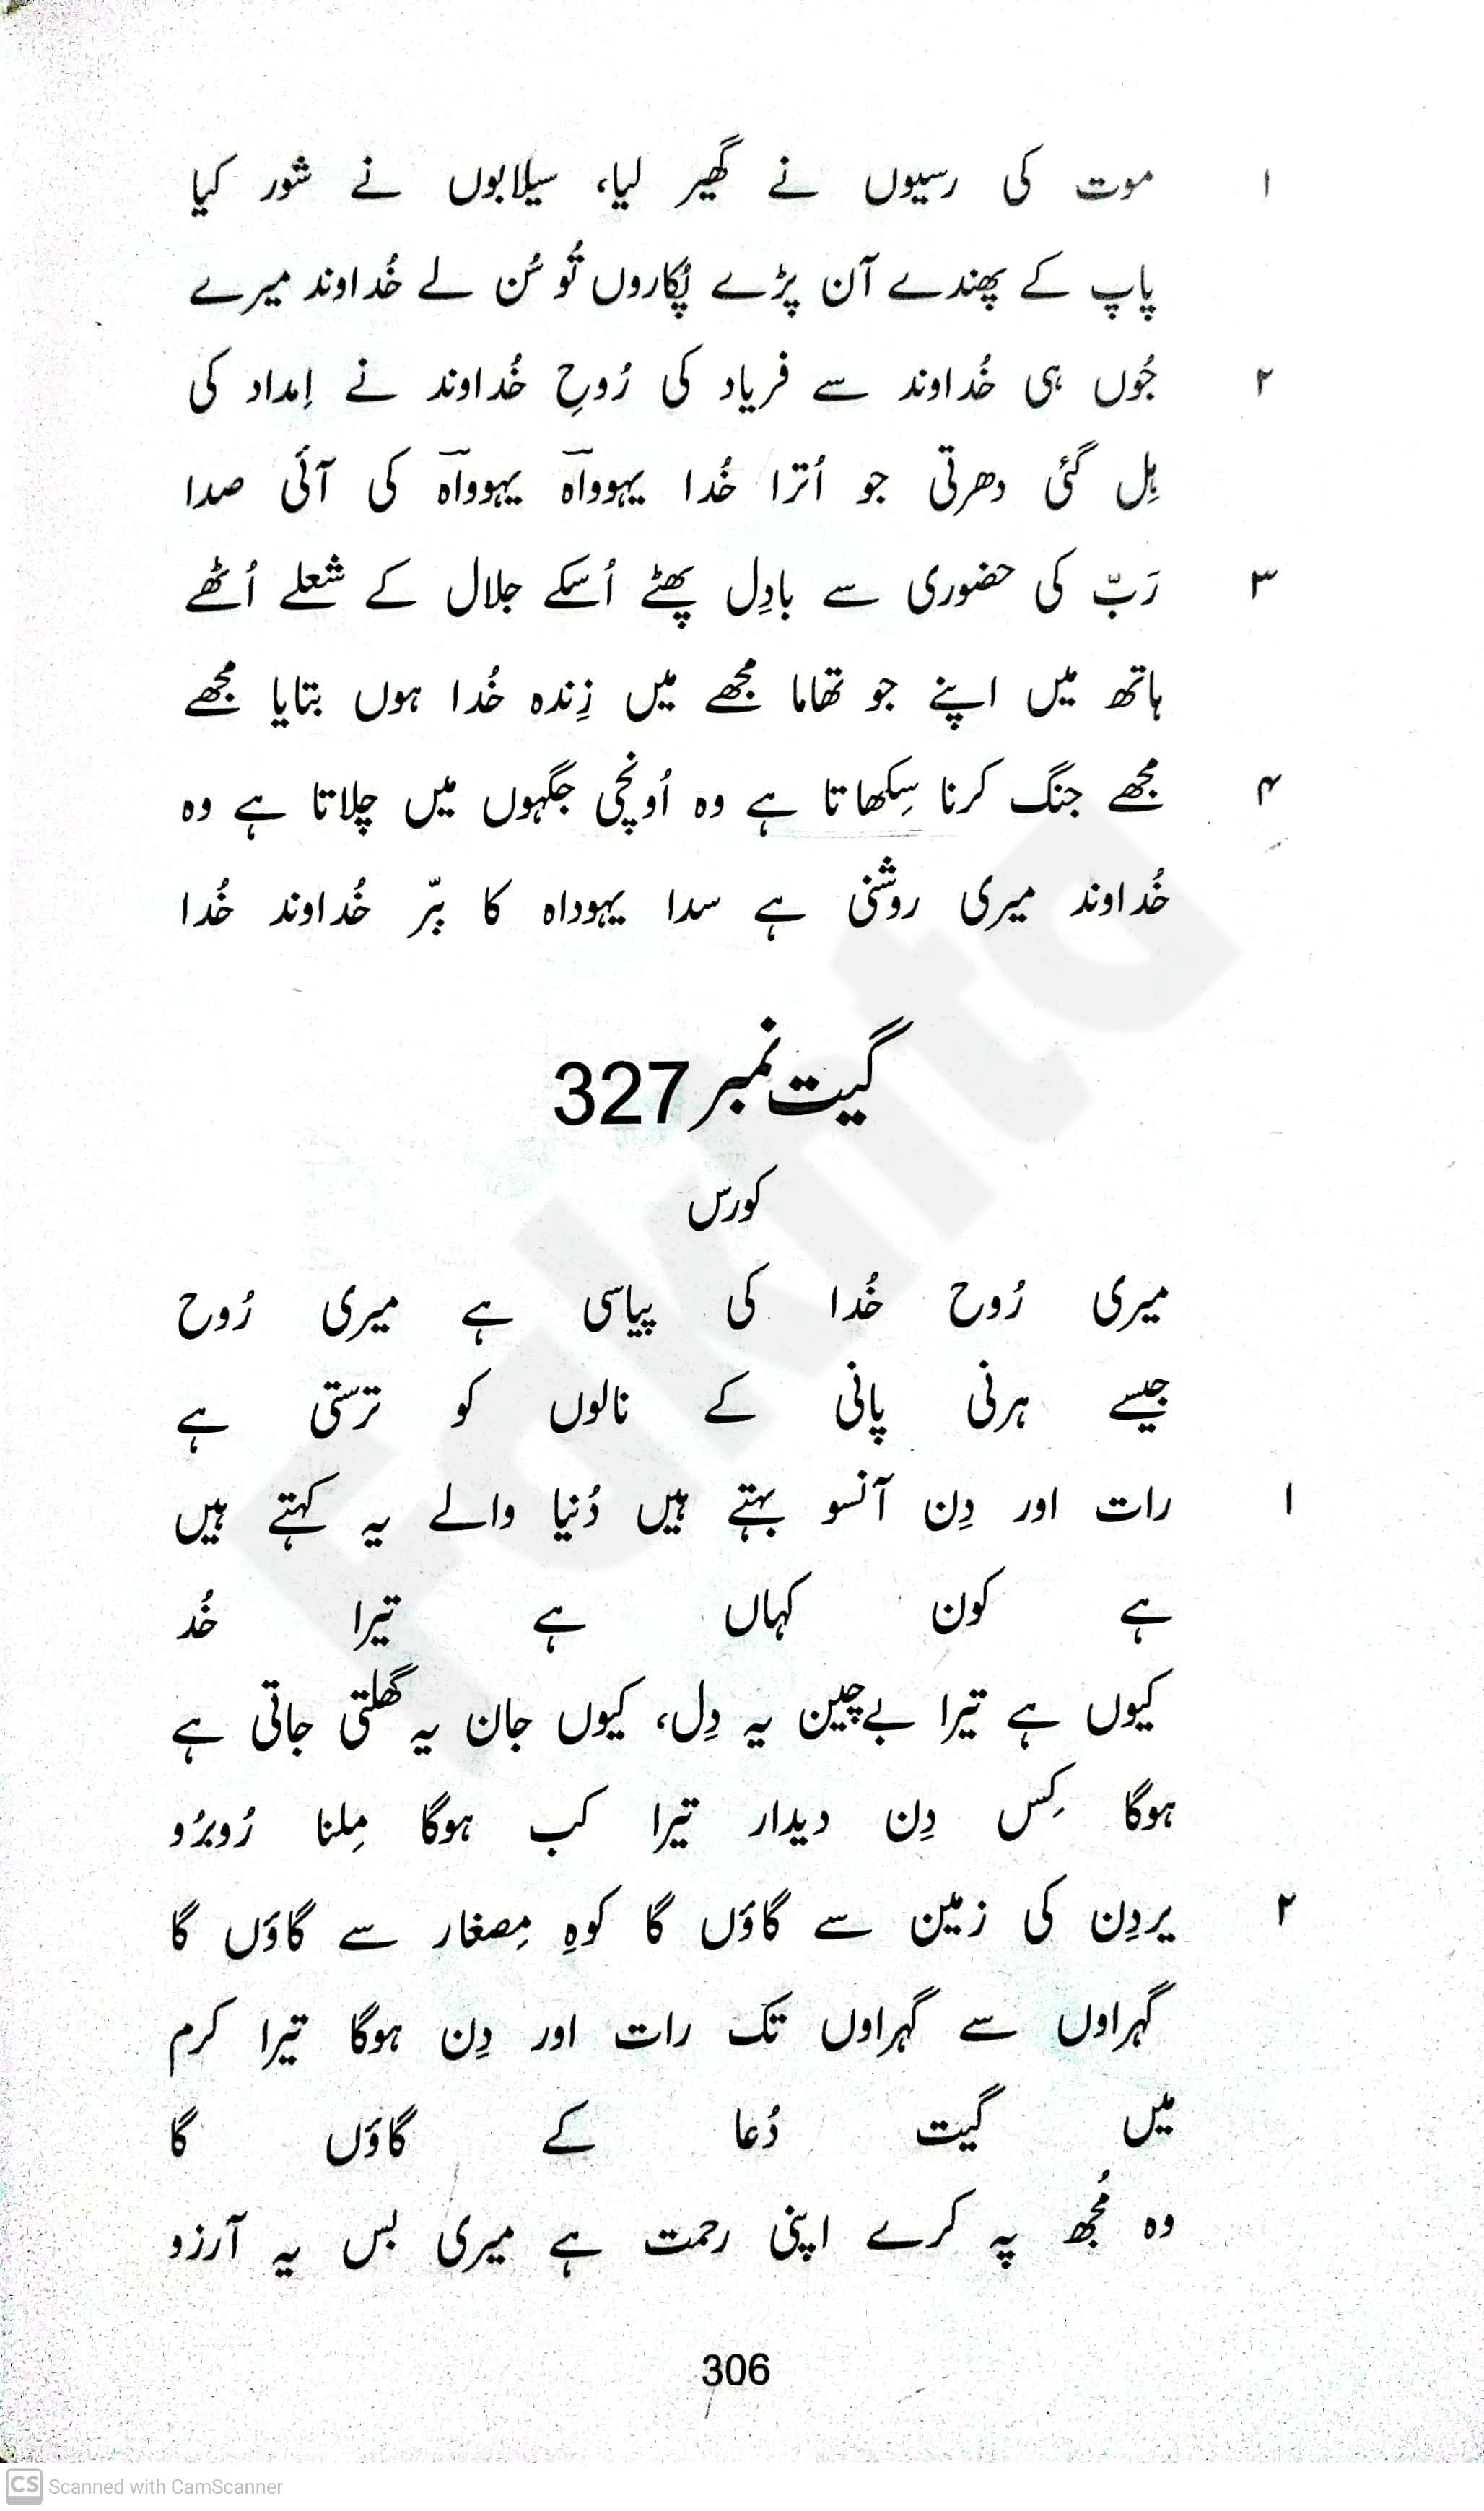 ۱ موت کی رسیوں نے گھیر لیا، سیلابوں نے شور کیا
پاپ کے پھندے آن پڑے پُکاروں تُو سُن لے خُداوند میرے
۲ جُوں ہی خُداوند سے فریاد کی رُوحِ خُداوند نے اِمداد کی
ہِل گئی دھرتی جو اُترا خُدا یہوواہ یہوواہ کی آئی صدا
۳ رَبّ کی حضوری سے بادِل پھٹے اُسکے جلال کے شعلے اُٹھے
ہاتھ میں اپنے جو تھاما مجھے میں زِندہ خُدا ہوں بتایا مجھے
۴ مجھے جنگ کرنا سِکھاتا ہے وہ اُونچی جگہوں میں چلاتا ہے وہ
خُداوند میری روشنی ہے سدا یہوداہ کا ببّر خُداوند خُدا
گیت نمبر 327
کورس
میری رُوح خُدا کی پیاسی ہے میری رُوح
جیسے ہرنی پانی کے نالوں کو ترستی ہے
۱ رات اور دِن آنسو بہتے ہیں دُنیا والے یہ کہتے ہیں
ہے کون کہاں ہے تیرا خُد
کیوں ہے تیرا بےچین یہ دِل، کیوں جان یہ گھلتی جاتی ہے
ہوگا کِس دِن دیدار تیرا کب ہوگا مِلنا رُوبرُو
۲ یردِن کی زمین سے گاؤں گا کوہِ مِصغار سے گاؤں گا
گہراوں سے گہراوں تک رات اور دِن ہوگا تیرا کرم
میں گیت دُعا کے گاؤں گا
وہ مُجھ پہ کرے اپنی رحمت ہے میری بس یہ آرزو
306
CS Scanned with CamScanner